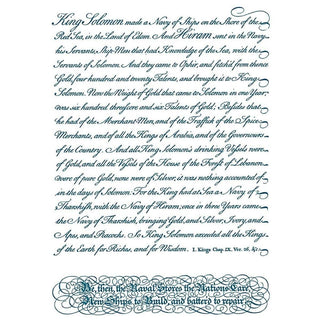 King Solomon made a Navy of Ships on the Shore of the
Red Sea, in the Land of Edom. And Hiram sent in the Navy
his Servants, Ship Men that had Knowledge of the Sea, with the
Servants of Solomon. And they came to Ophir, and fetch'd from thence
Gold, four hundred and twenty Talents, and brought it to King
Solomon. Now the Weight of Gold that came to Solomon in one Year,
was six hundred threescore and six Talents of Gold, Besides that
he had of the Merchant Men, and of the Traffick of the Spice
Merchants, and of all the Kings of Arabia, and of the Governors
of the Country. And all King Solomon's drinking Vessels were
of Gold, and all the Vessels of the House of the Forest of Lebanon
were of pure Gold, none were of Silver; it was nothing accounted of
in the days of Solomon. For the King had at Sea a Navy of
Tharshish, with the Navy of Hiram, once in three Years came
the Navy of Tharshish, bringing Gold, and Silver, Ivory, and
Apes, and Peacocks. So King Solomon exceeded all the Kings of
the Earth for Riches, and for Wisdom. I. Kings Chap. IX. Ver. 26, &c.
We, then, the Naval Stores the Nations Care,
New Ships to Build, and batter'd to repair.